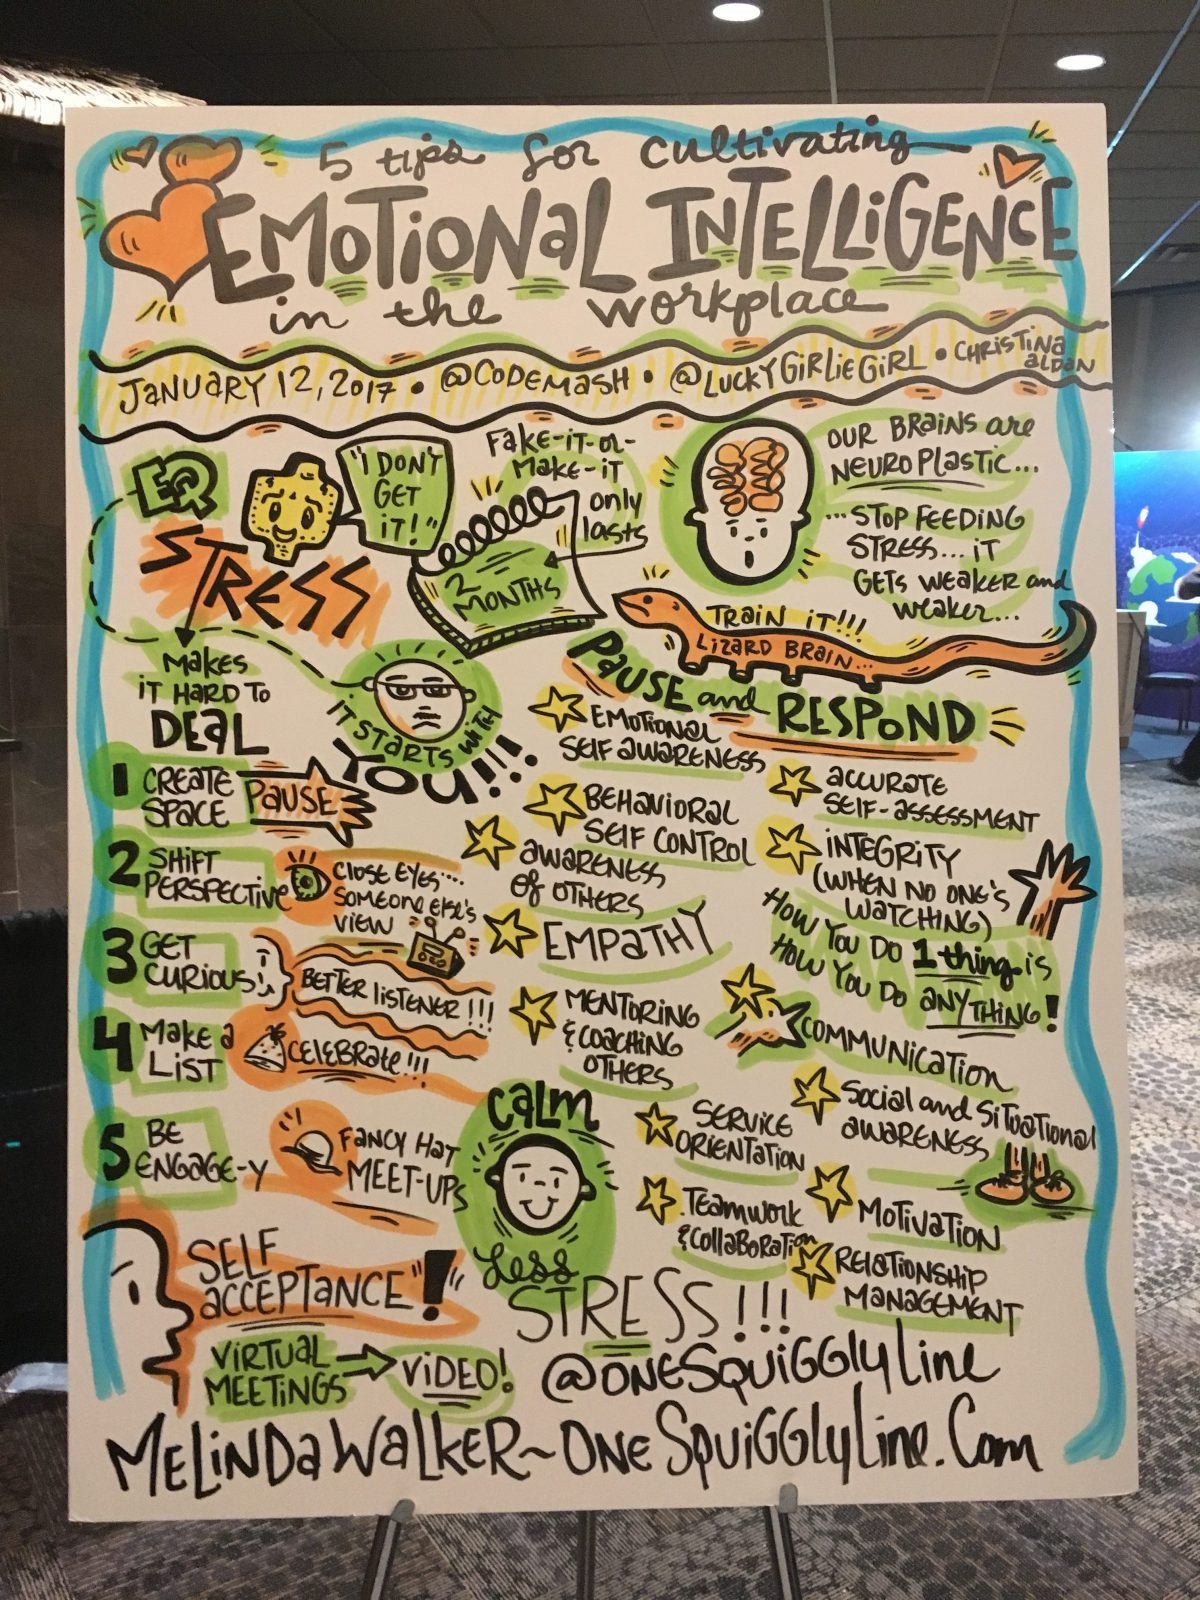 5 tips for cultivating
EMOTIONAL INTELLIGENCE
in the workplace
JANUARY 12, 2017 • @CODEMASH • @LUCKYGIRLIEGIRL • CHRISTINA
ALDAN
EQ
STRESS
MAKES
IT HARD TO
DEAL
"I DON'T
GET
IT!"
Fake-IT-OR-
MAKE-IT
only
lasts
2
MONTHS
IT STARTS WITH
YOU!!!
OUR BRAINS are
NEUROPLASTIC...
...STOP FEEDING
STRESS... IT
GETS WEAKER and
WEAKER...
TRAIN IT!!!
LIZARD BRAIN...
PAUSE and
RESPOND
1 CREATE
SPACE
PAUSE
2 SHIFT
PERSPECTIVE
CLOSE EYES....
SOMEONE ELSE'S
VIEW
3 GET
CURIOUS
BETTER LISTENER!!!
4 MAKE A
LIST
CELEBRATE!!!
5 BE
ENGAGE-Y
FANCY HAT
MEET-UPS
SELF
ACCEPTANCE!
VIRTUAL
MEETINGS
VIDEO!
EMOTIONAL
SELF AWARENESS
ACCURATE
SELF-ASSESSMENT
BEHAVIORAL
SELF CONTROL
INTEGRITY
(WHEN NO ONE'S
WATCHING)
HOW YOU DO 1 thing is
HOW YOU DO ANYTHING!
AWARENESS
OF OTHERS
EMPATHY
MENTORING
& COACHING
OTHERS
COMMUNICATION
SOCIAL and SITUATIONAL
AWARENESS
SERVICE
ORIENTATION
MOTIVATION
TEAMWORK
& COLLABORATION
RELATIONSHIP
MANAGEMENT
CALM
Less
STRESS!!!
@ONESQUIGGLYLINE
MELINDA WALKER~ONESQUIGGLYLINE.COM